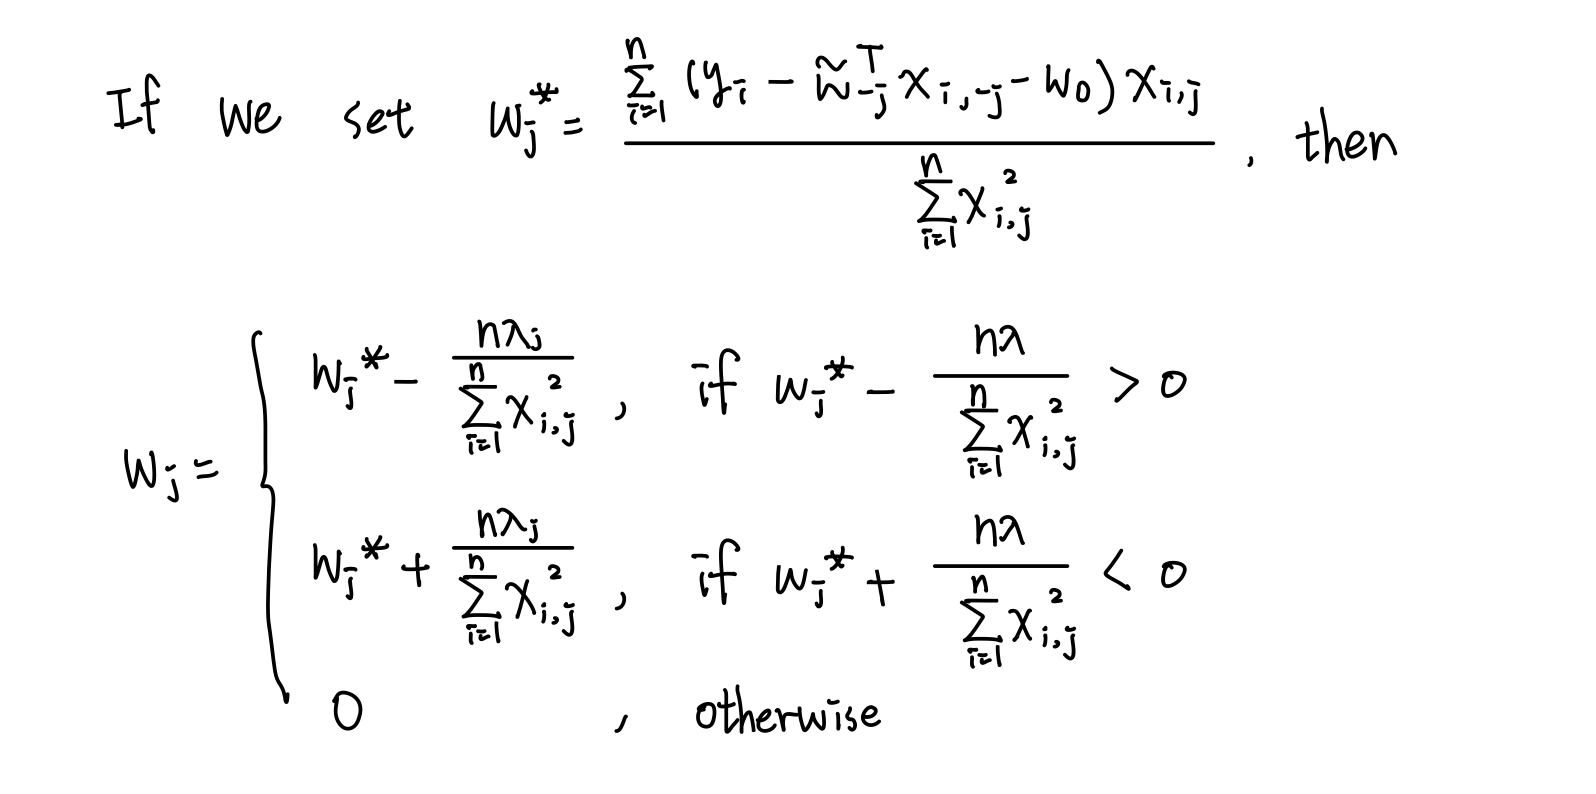 If we set $w_j^* = \frac{\sum_{i=1}^{n} (y_i - \tilde{w}_{-j}^T x_{i,-j} - w_0) x_{i,j}}{\sum_{i=1}^{n} x_{i,j}^2}$, then
$w_j = \begin{cases} w_j^* - \frac{n\lambda_j}{\sum_{i=1}^{n} x_{i,j}^2}, & \text{if } w_j^* - \frac{n\lambda}{\sum_{i=1}^{n} x_{i,j}^2} > 0 \\ w_j^* + \frac{n\lambda_j}{\sum_{i=1}^{n} x_{i,j}^2}, & \text{if } w_j^* + \frac{n\lambda}{\sum_{i=1}^{n} x_{i,j}^2} < 0 \\ 0, & \text{otherwise} \end{cases}$